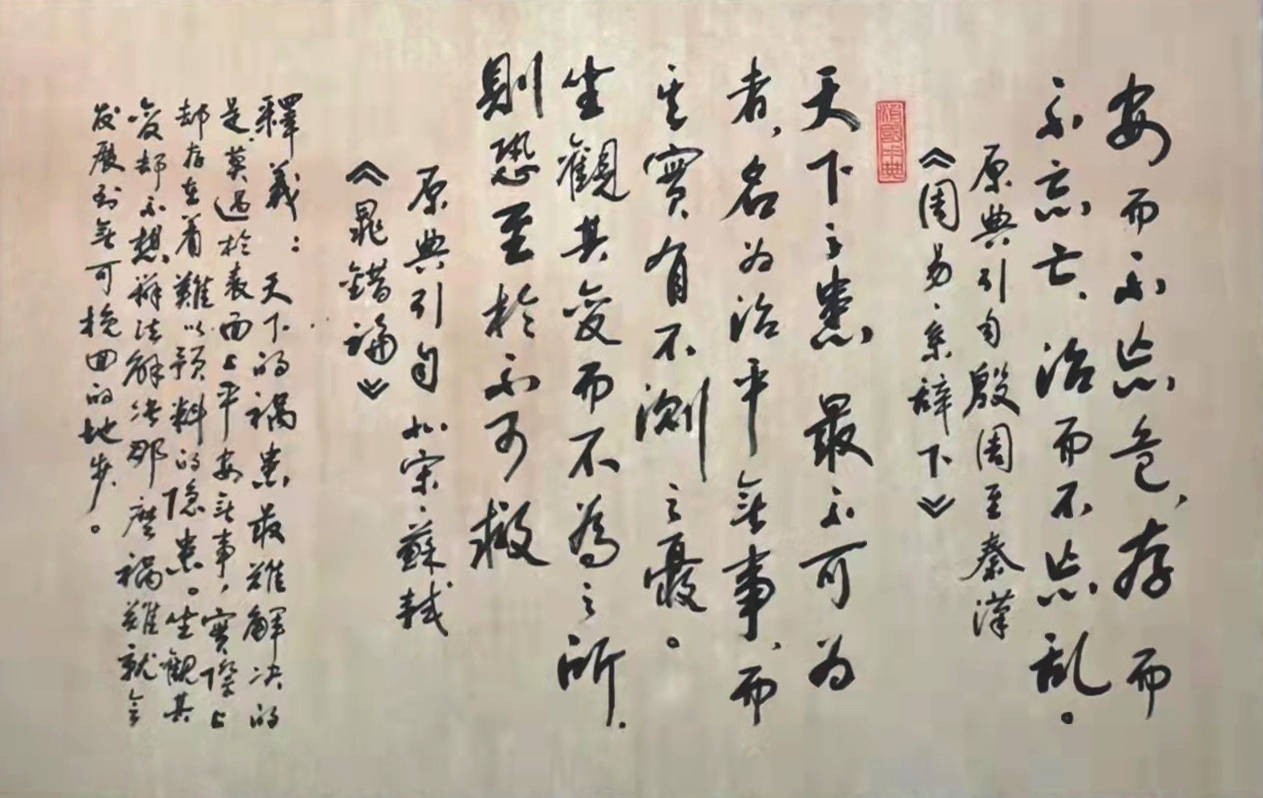 安而不忘危、存而
不忘亡、治而不忘乱。
原典引自殷周至秦漢
《周易·系辞下》
天下之患,最不可为
者,名为治平無事,而
其實有不測之憂。
坐觀其变而不為之所,
則恐至於不可救
原典引自北宋·蘇軾
《晁錯論》
釋義:天下的禍患最难解决的
是,莫過於表面上平安無事,实際上
却存在着難以预料的隐患。坐觀其
变却不想辦法解决那麽禍難就会
发展到無可挽回的地步。